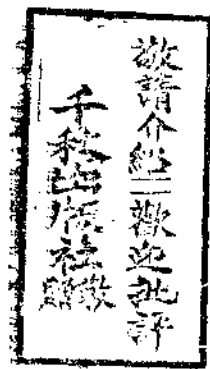 敬請介紹一歡迎批評
千秋出版社敬贈